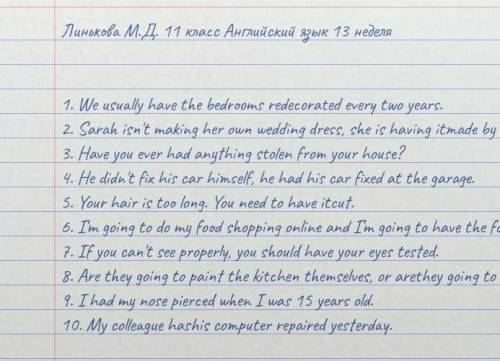 Линькова М.Д. 11 класс Английский язык 13 неделя
1. We usually have the bedrooms redecorated every two years.
2. Sarah isn't making her own wedding dress, she is having itmade by
3. Have you ever had anything stolen from your house?
4. He didn't fix his car himself, he had his car fixed at the garage.
5. Your hair is too long. You need to have itcut.
6. I'm going to do my food shopping online and I'm going to have the
7. If you can't see properly, you should have your eyes tested.
8. Are they going to paint the kitchen themselves, or arethey going to
9. I had my nose pierced when I was 15 years old.
10. My colleague hashis computer repaired yesterday.